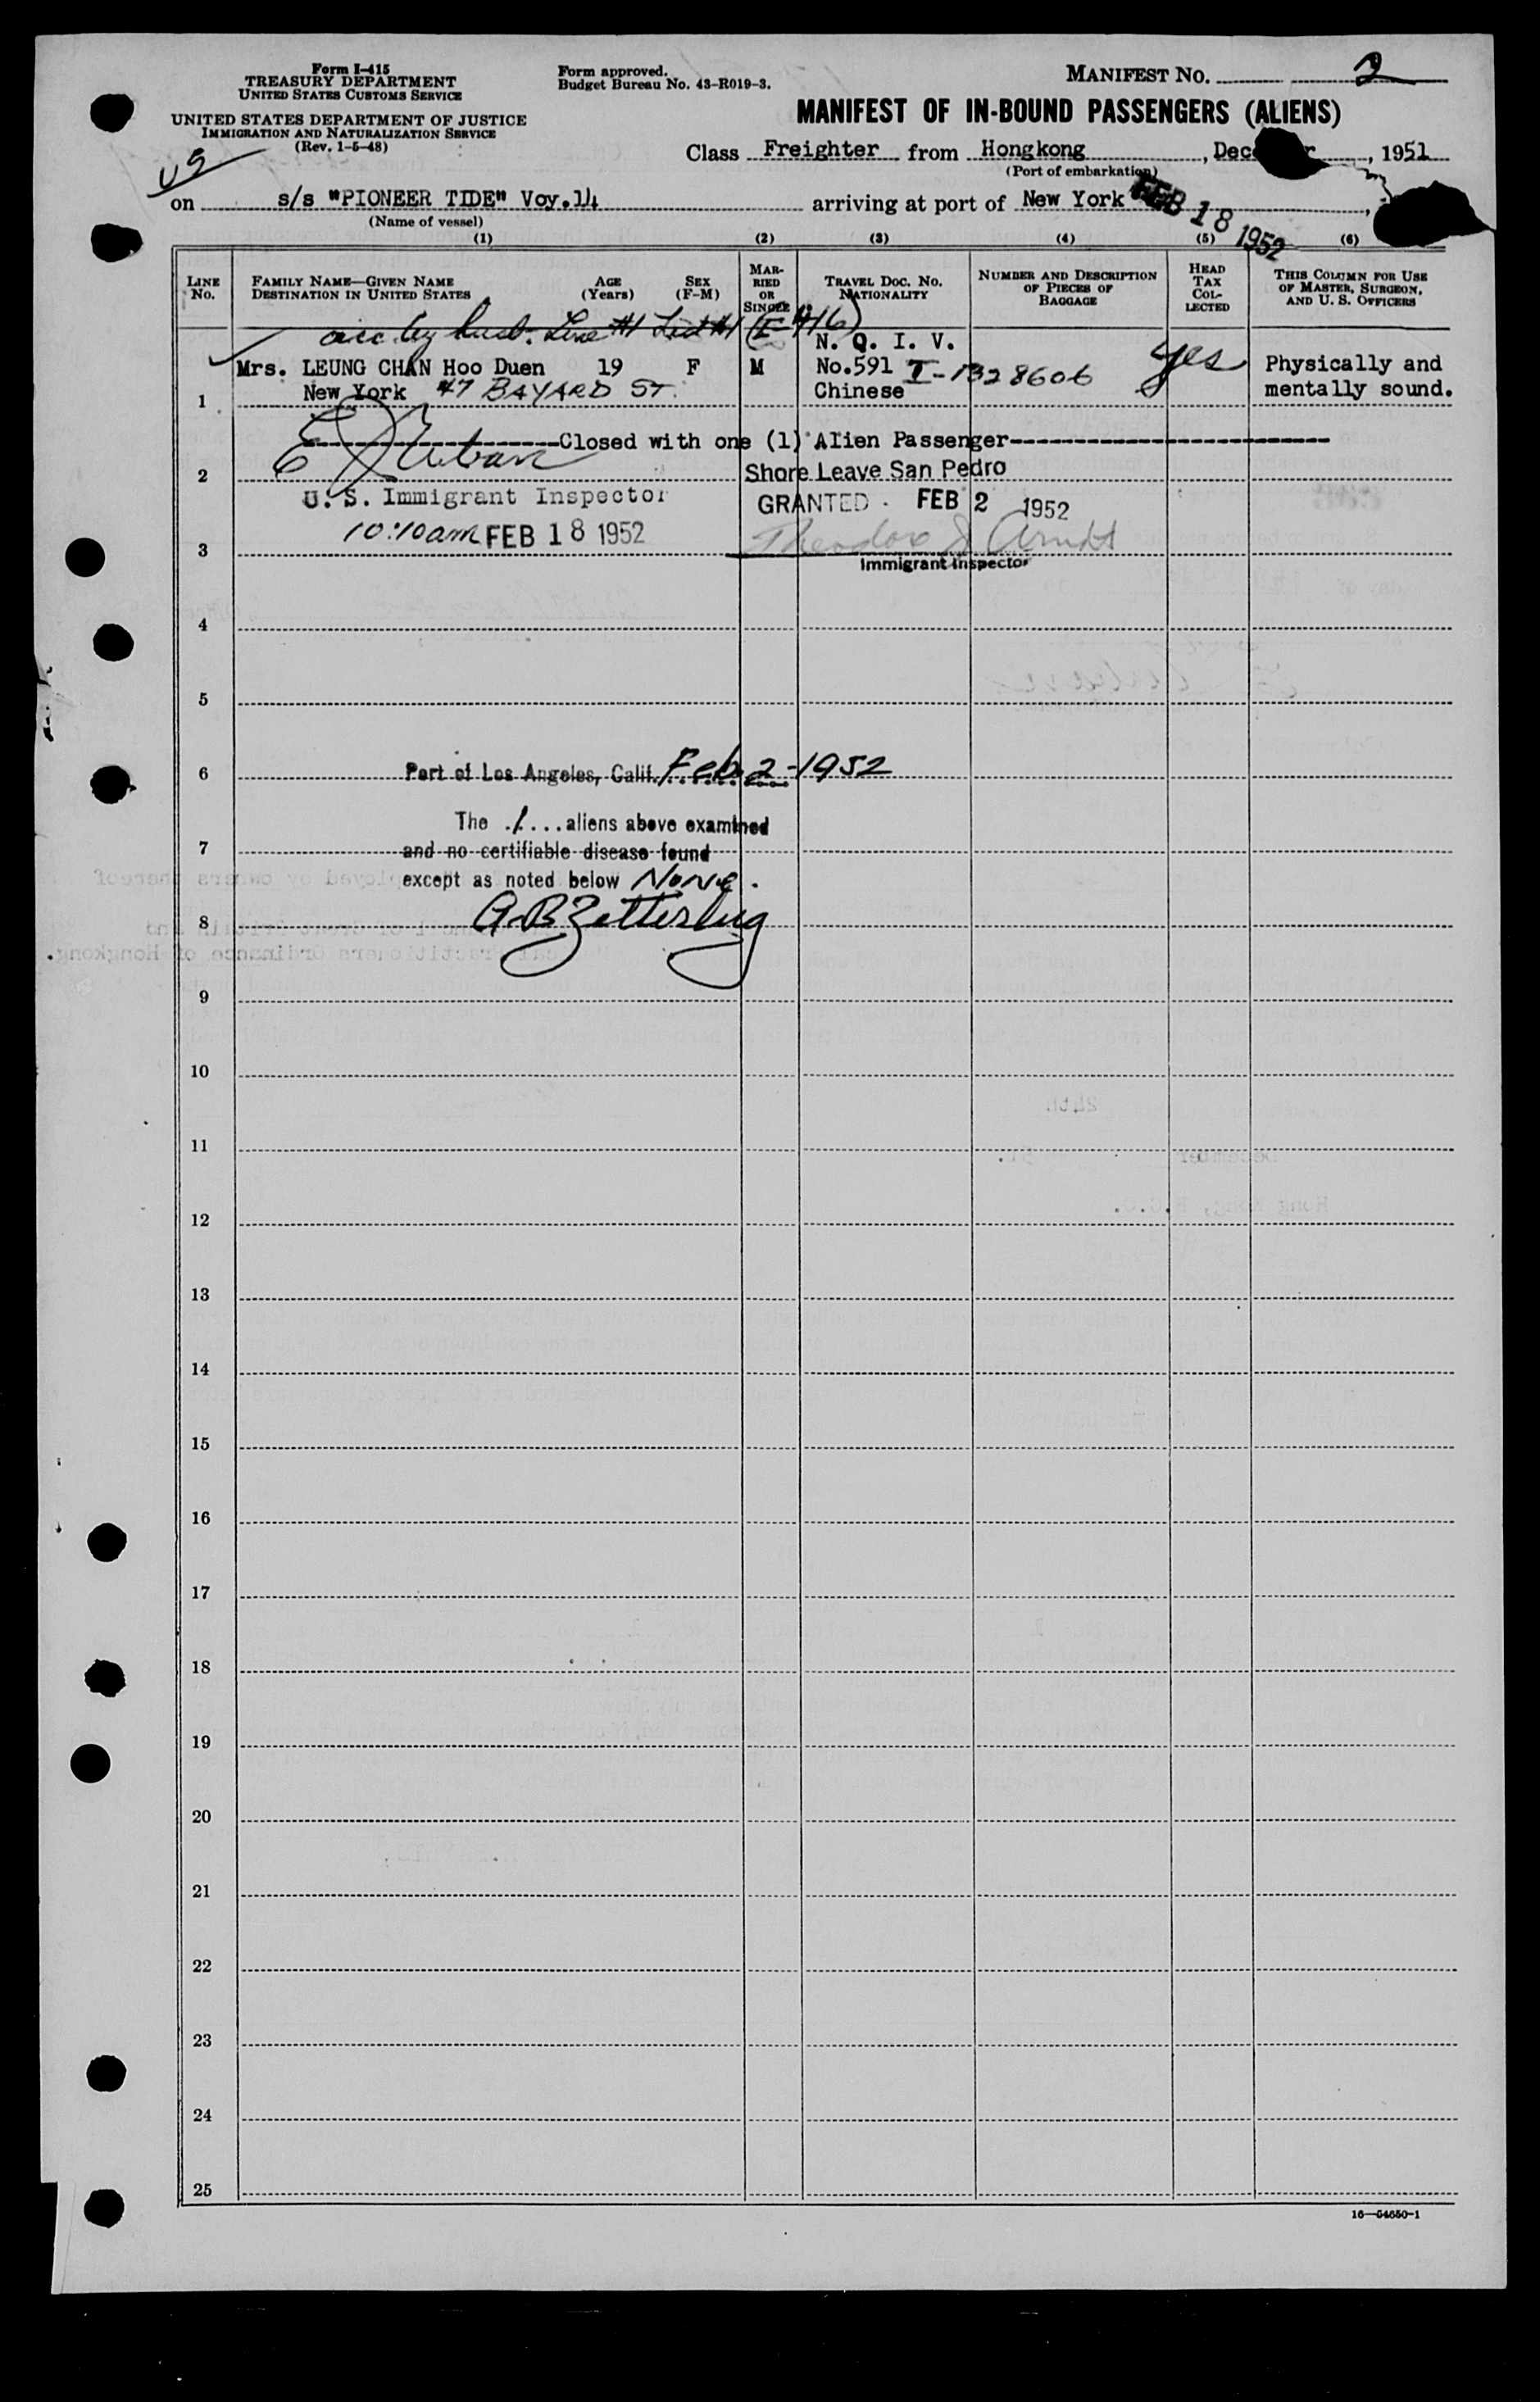 Form I-415
TREASURY DEPARTMENT
UNITED STATES CUSTOMS SERVICE
UNITED STATES DEPARTMENT OF JUSTICE
IMMIGRATION AND NATURALIZATION SERVICE
(Rev. 1-5-48)
Form approved.
Budget Bureau No. 43-R019-3.
MANIFEST NO. 2
MANIFEST OF IN-BOUND PASSENGERS (ALIENS)
Class Freighter from Hongkong, Dec r, 1951
(Port of embarkation)
on s/s "PIONEER TIDE" Voy.14 arriving at port of New York FEB 18 1952
(Name of vessel)
(1) (2) (3) (4) (5) (6)
LINE No.
FAMILY NAME—GIVEN NAME
DESTINATION IN UNITED STATES
AGE (Years)
SEX (F-M)
MARRIED OR SINGLE
TRAVEL DOC. NO. NATIONALITY
NUMBER AND DESCRIPTION OF PIECES OF BAGGAGE
HEAD TAX COLLECTED
THIS COLUMN FOR USE OF MASTER, SURGEON, AND U. S. OFFICERS
acc. by husb. Line #1 List #1 (I-416)
N. Q. I. V.
Mrs. LEUNG CHAN Hoo Duen 19 F M No.591 I-1328606 Yes Physically and
1 New York 47 BAYARD ST. Chinese mentally sound.
Closed with one (1) Alien Passenger
2 Shore Leave San Pedro
U. S. Immigrant Inspector GRANTED. FEB 2 1952
10:10am FEB 18 1952 Theodore J Arndt
3 Immigrant Inspector
4
5
6 Port of Los Angeles, Calif. Feb. 2-1952
The 1 aliens above examined
7 and no certifiable disease found
except as noted below None.
8
9
10
11
12
13
14
15
16
17
18
19
20
21
22
23
24
25
16—54650-1